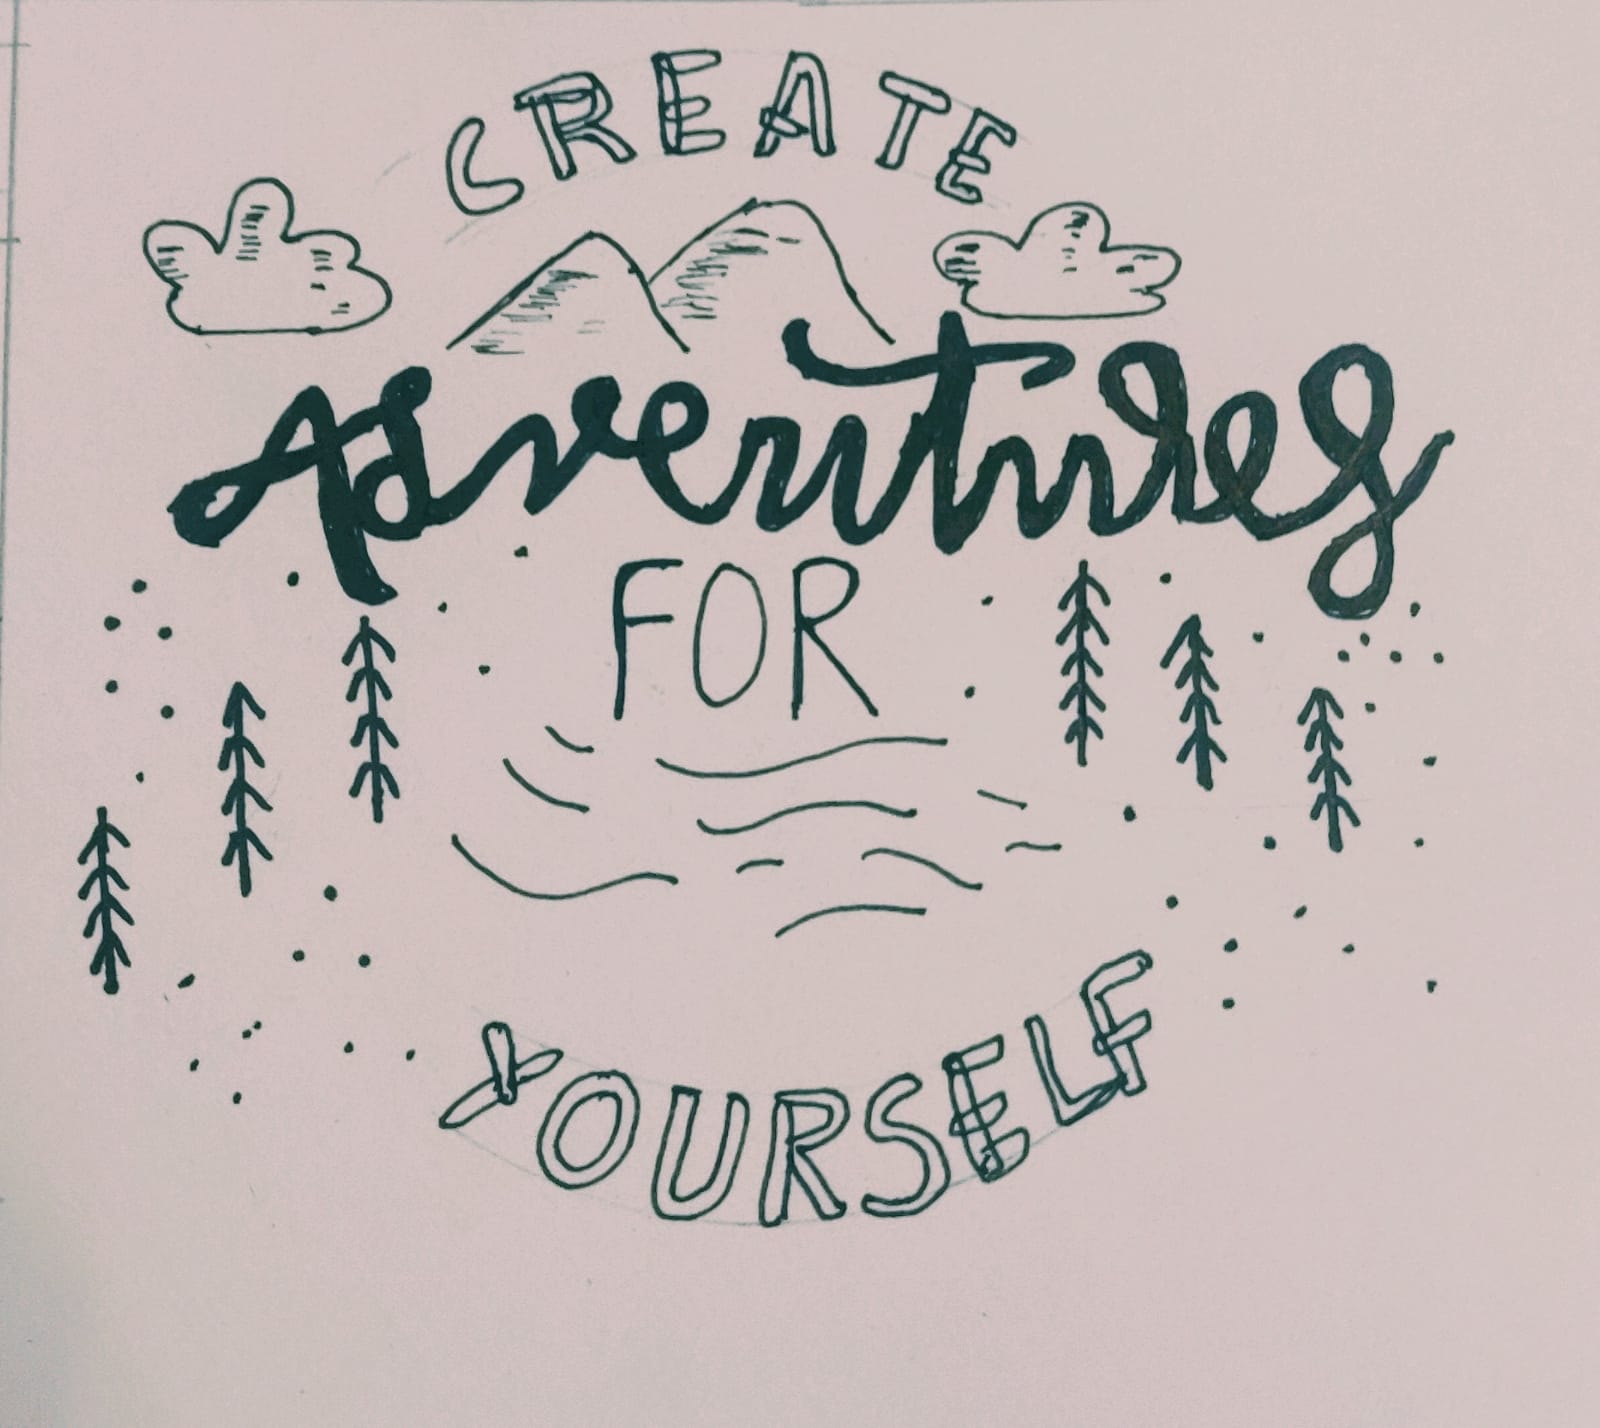 CREATE
Adventures
FOR
YOURSELF